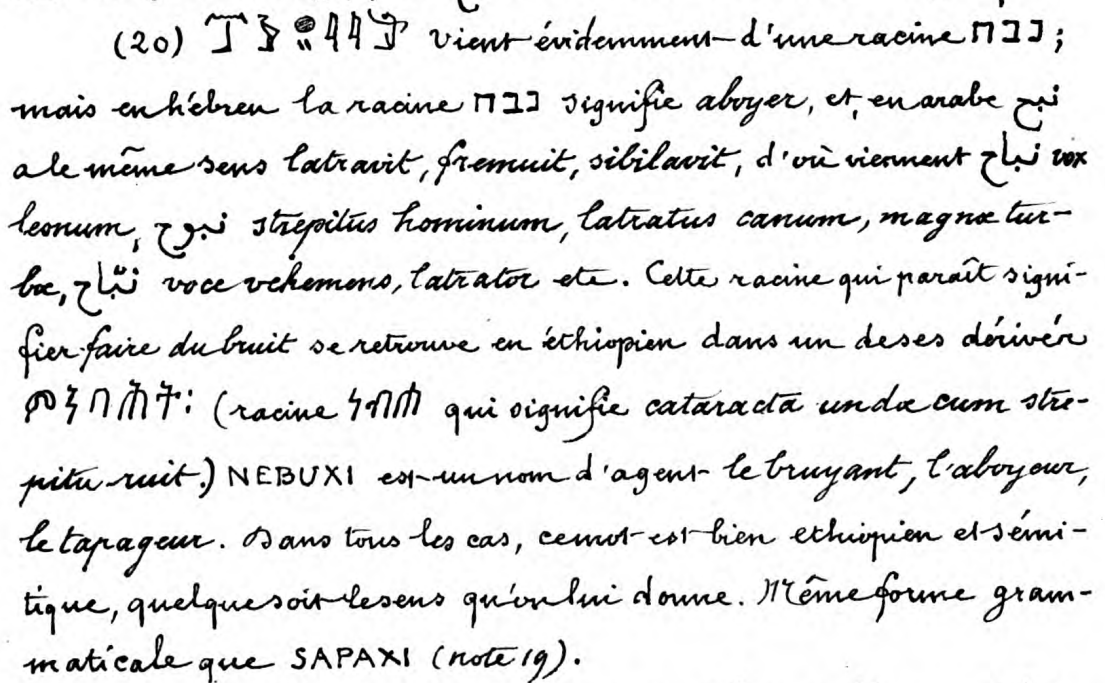 (20) vient évidemment d'une racine נבח ;
mais en hébreu la racine נבח signifie aboyer, et, en arabe نبح
a le même sens latravit, fremuit, sibilavit, d'où viennent نباح vox
leonum, نبوح strepitus hominum, latratus canum, magnæ tur-
bæ, نبّاح voce vehemens, latrator etc. Cette racine qui paraît signi-
fier faire du bruit se retrouve en éthiopien dans un de ses dérivés
(racine ነብሐ qui signifie cataracta undæ cum stre-
pitu ruit.) NEBUXI est un nom d'agent le bruyant, l'aboyeur,
le tapageur. Dans tous les cas, ce mot est bien ethiopien et sémi-
tique, quelque soit le sens qu'on lui donne. Même forme gram-
maticale que SAPAXI (note 19).